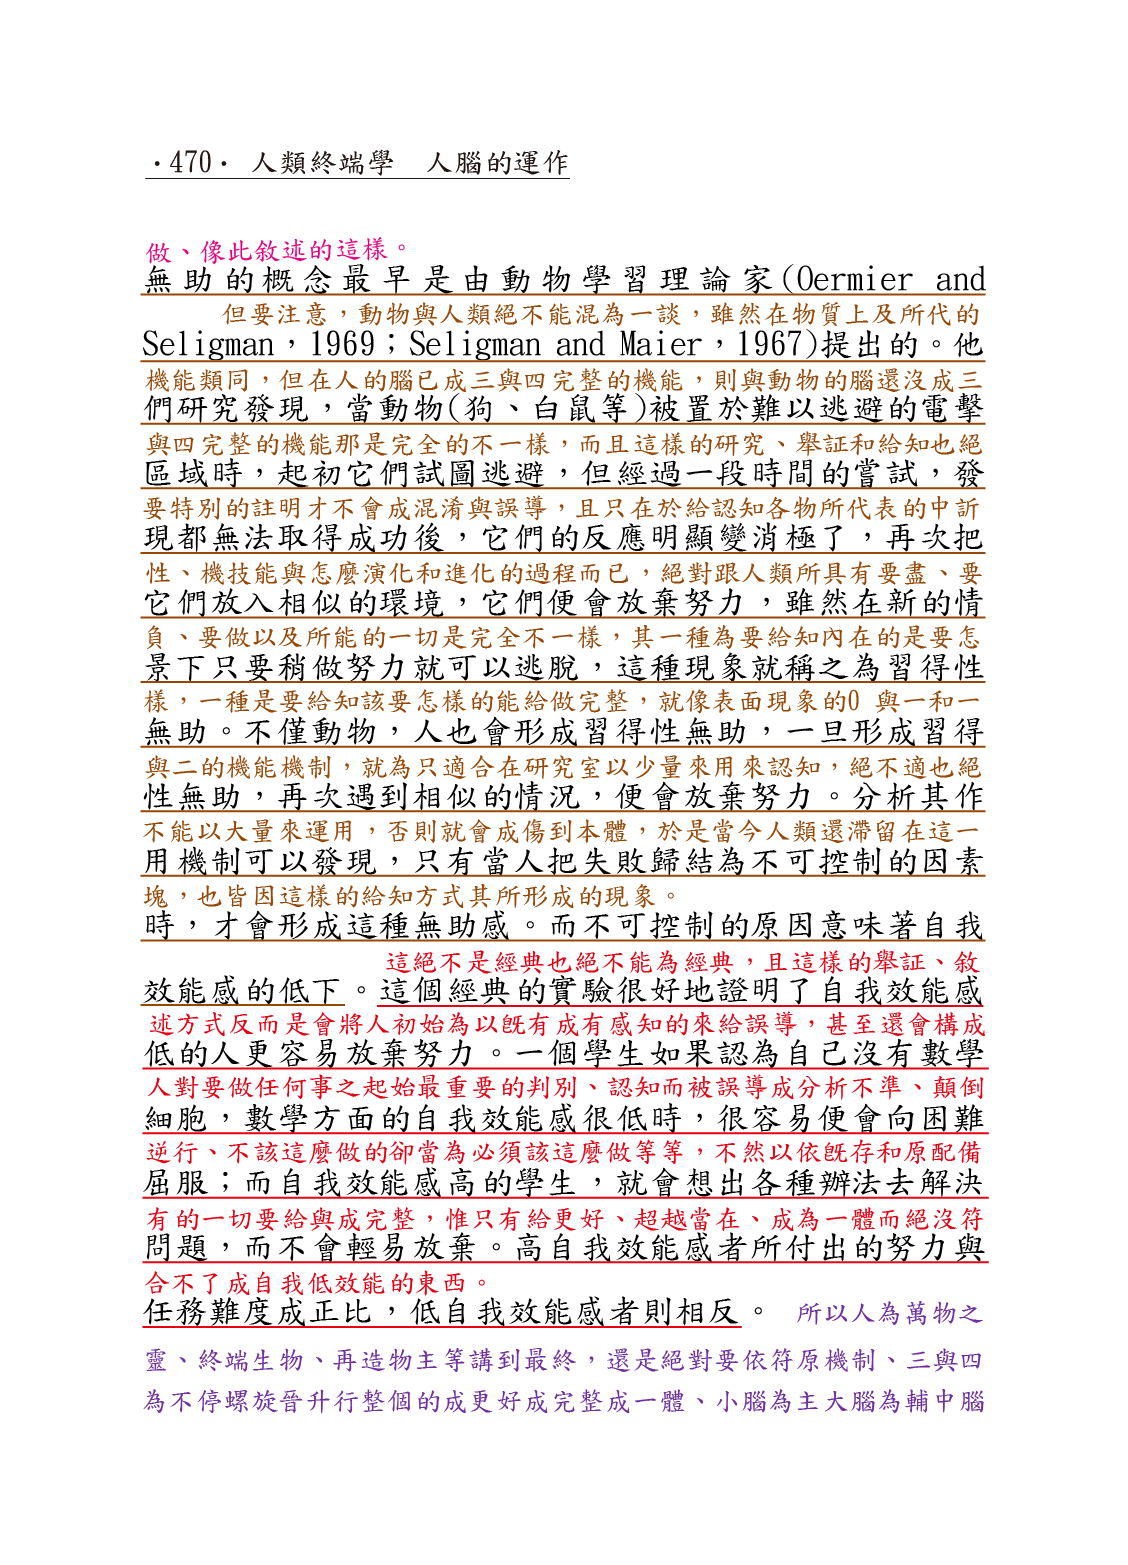 ·470· 人類終端學　人腦的運作
做、像此敘述的這樣。
無助的概念最早是由動物學習理論家(Oermier and
但要注意，動物與人類絕不能混為一談，雖然在物質上及所代的
Seligman，1969；Seligman and Maier，1967)提出的。他
機能類同，但在人的腦已成三與四完整的機能，則與動物的腦還沒成三
們研究發現，當動物(狗、白鼠等)被置於難以逃避的電擊
與四完整的機能那是完全的不一樣，而且這樣的研究、舉証和給知也絕
區域時，起初它們試圖逃避，但經過一段時間的嘗試，發
要特別的註明才不會成混淆與誤導，且只在於給認知各物所代表的中訢
現都無法取得成功後，它們的反應明顯變消極了，再次把
性、機技能與怎麼演化和進化的過程而已，絕對跟人類所具有要盡、要
它們放入相似的環境，它們便會放棄努力，雖然在新的情
負、要做以及所能的一切是完全不一樣，其一種為要給知內在的是要怎
景下只要稍做努力就可以逃脫，這種現象就稱之為習得性
樣，一種是要給知該要怎樣的能給做完整，就像表面現象的0 與一和一
無助。不僅動物，人也會形成習得性無助，一旦形成習得
與二的機能機制，就為只適合在研究室以少量來用來認知，絕不適也絕
性無助，再次遇到相似的情況，便會放棄努力。分析其作
不能以大量來運用，否則就會成傷到本體，於是當今人類還滯留在這一
用機制可以發現，只有當人把失敗歸結為不可控制的因素
塊，也皆因這樣的給知方式其所形成的現象。
時，才會形成這種無助感。而不可控制的原因意味著自我
這絕不是經典也絕不能為經典，且這樣的舉証、敘
效能感的低下。這個經典的實驗很好地證明了自我效能感
述方式反而是會將人初始為以既有成有感知的來給誤導，甚至還會構成
低的人更容易放棄努力。一個學生如果認為自己沒有數學
人對要做任何事之起始最重要的判別、認知而被誤導成分析不準、顛倒
細胞，數學方面的自我效能感很低時，很容易便會向困難
逆行、不該這麼做的卻當為必須該這麼做等等，不然以依既存和原配備
屈服；而自我效能感高的學生，就會想出各種辦法去解決
有的一切要給與成完整，惟只有給更好、超越當在、成為一體而絕沒符
問題，而不會輕易放棄。高自我效能感者所付出的努力與
合不了成自我低效能的東西。
任務難度成正比，低自我效能感者則相反。　所以人為萬物之
靈、終端生物、再造物主等講到最終，還是絕對要依符原機制、三與四
為不停螺旋晉升行整個的成更好成完整成一體、小腦為主大腦為輔中腦